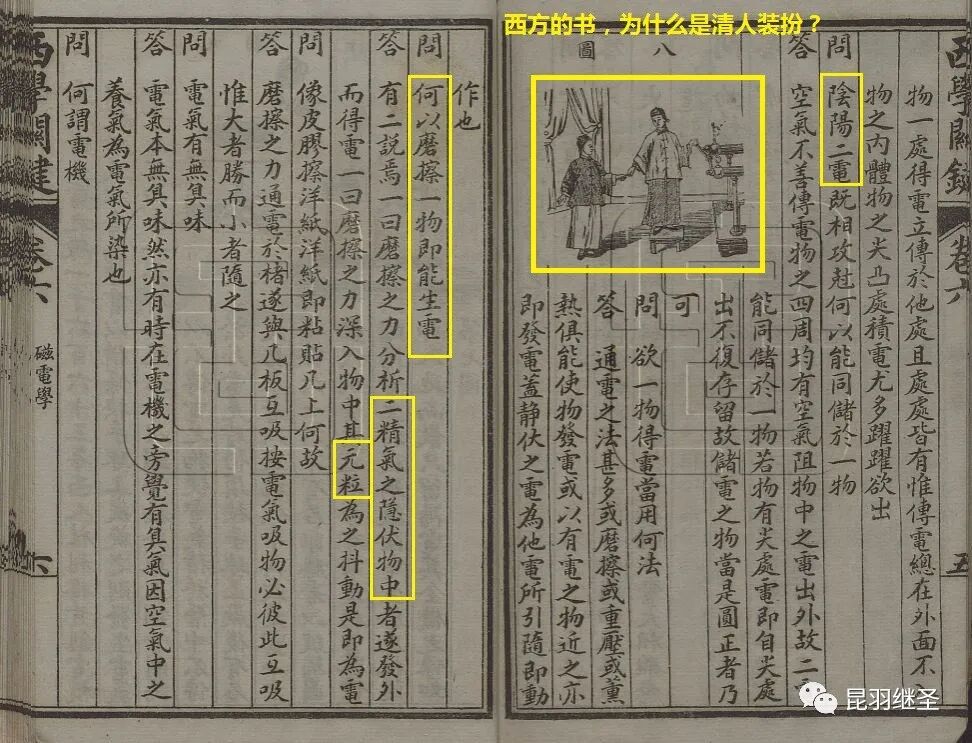 西方的书，为什么是清人装扮？
西學關鍵 卷六 五
物一處得電立傳於他處且處處皆有惟傳電總在外面不
物之內體物之尖凸處積電尤多躍躍欲出
問 陰陽二電既相攻尅何以能同儲於一物
答 空氣不善傳電物之四周均有空氣阻物中之電出外故二
八圖
能同儲於一物若物有尖處電即自尖處
出不復存留故儲電之物當是圓正者乃
可
問 欲一物得電當用何法
答 通電之法甚多或磨擦或重壓或薰
熱俱能使物發電或以有電之物近之亦
即發電蓋静伏之電為他電所引隨即動
作也
問 何以磨擦一物即能生電
答 有二説焉一曰磨擦之力分析二精氣之隱伏物中者遂發外
而得電一曰磨擦之力深入物中其元粒為之抖動是即為電
問 像皮膠擦洋紙洋紙即粘貼几上何故
答 磨擦之力通電於楮遂與几板互吸按電氣吸物必彼此互吸
惟大者勝而小者隨之
問 電氣有無臭味
答 電氣本無臭味然亦有時在電機之旁覺有臭氣因空氣中之
養氣為電氣所染也
問 何謂電機
西學關鍵 卷六 磁電學 六
昆羽继圣